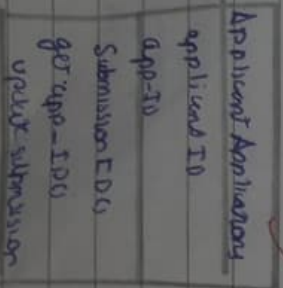 Applicant Applications
applicant ID
app-ID
Submission ID()
get app-ID()
update submission